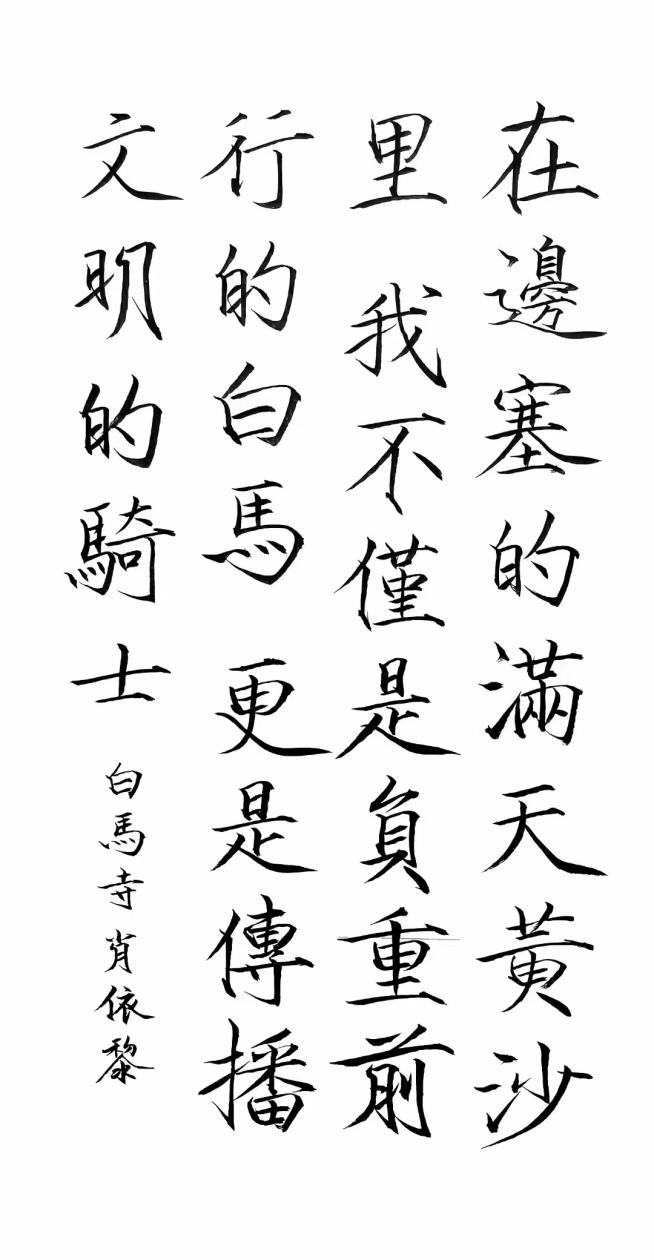 在邊塞的滿天黃沙
里 我不僅是負重前
行的白馬 更是傳播
文明的騎士
白馬寺 肖依黎